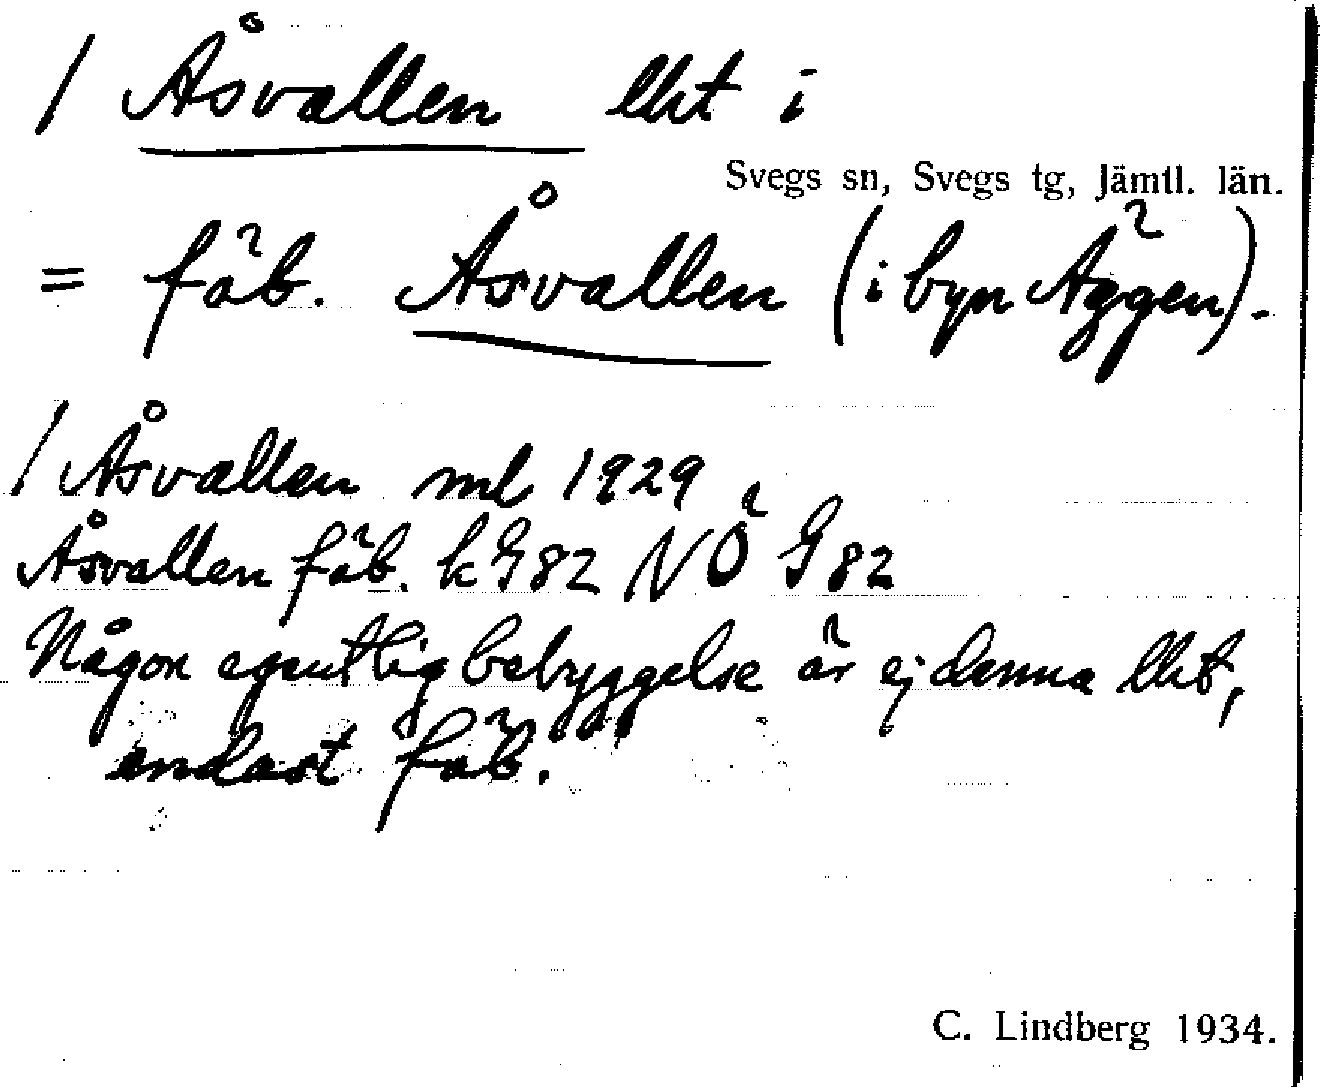 / Åsvallen lht i
Svegs sn, Svegs tg, Jämtl. län.
= fäb. Åsvallen (i byn Äggen).
/ Åsvallen ml 1929
Åsvallen fäb. k G82 NÖ G82
Någon egentlig bebyggelse är ej denna lht,
endast fäb.
C. Lindberg 1934.